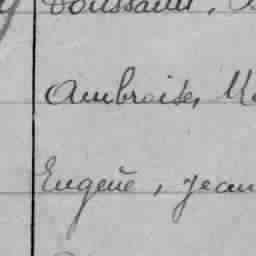 Toussaint,
Ambroise, Ma
Eugène, Jean